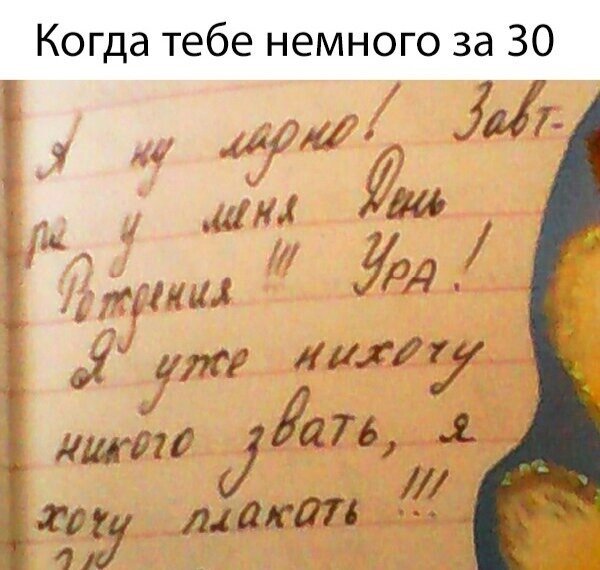 Когда тебе немного за 30
Я ну ладно! Завт-
ра у меня День
Рождения !!! УРА!
Я уже нихочу
никого звать, я
хочу плакать !!!